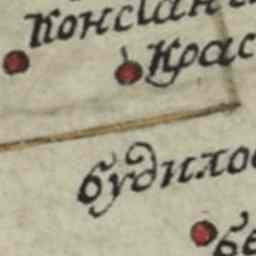 Констан
Крас
будило
бе